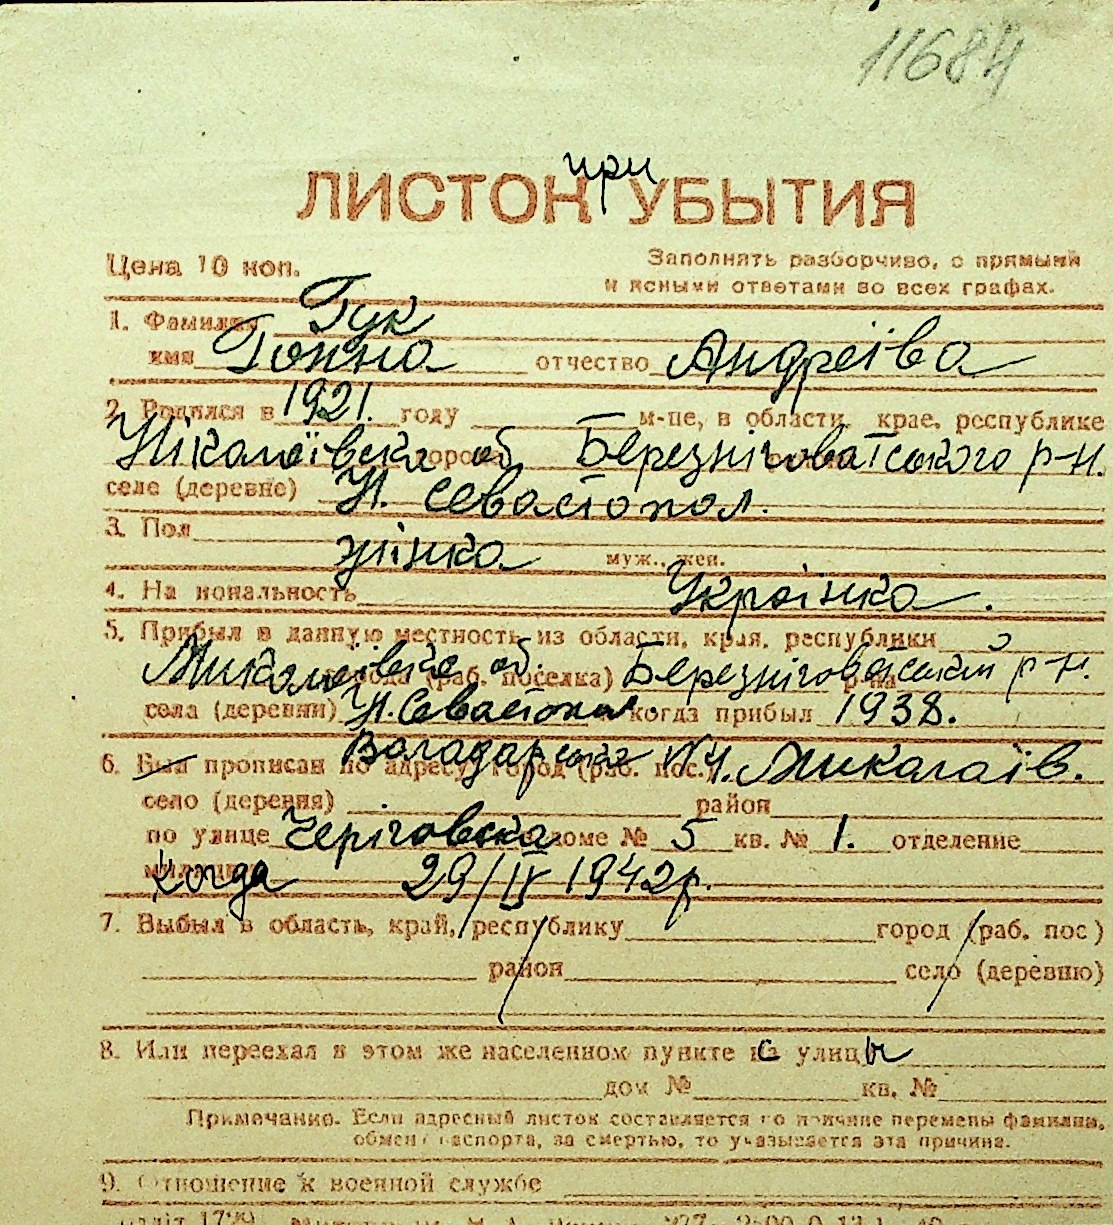 11684
ЛИСТОК при УБЫТИЯ
Цена 10 коп.
Заполнять разборчиво, с прямыми
и ясными ответами во всех графах.
1. Фамилия Гук
имя Ганна отчество Андреїва
2. Родился в 1921. году м-це, в области, крае, республике
Ніколаївска об города Березніговатського р-н.
селе (деревне) Н. Севастопол.
3. Пол жінка муж., жен.
4. На иональность Українка.
5. Прибыл в данную местность из области, края, республики
Миколаївске об. города (раб. поселка) Березніговатский р-на р-н.
села (деревни) Н. Севастопол. когда прибыл 1938.
6. Был прописан по адресу: город (раб. пос.) Миколаїв.
село (деревня) район
по улице Черіговска доме № 5 кв. № 1. отделение
милиции когда 29/IV 1942р.
7. Выбыл в область, край, республику город (раб. пос)
район село (деревню)
8. Или переехал в этом же населенном пункте с улицы
дом № кв. №
Примечание. Если адресный листок составляется по причине перемены фамилии,
обмен паспорта, за смертью, то указывается эта причина.
9. Отношение к военной службе